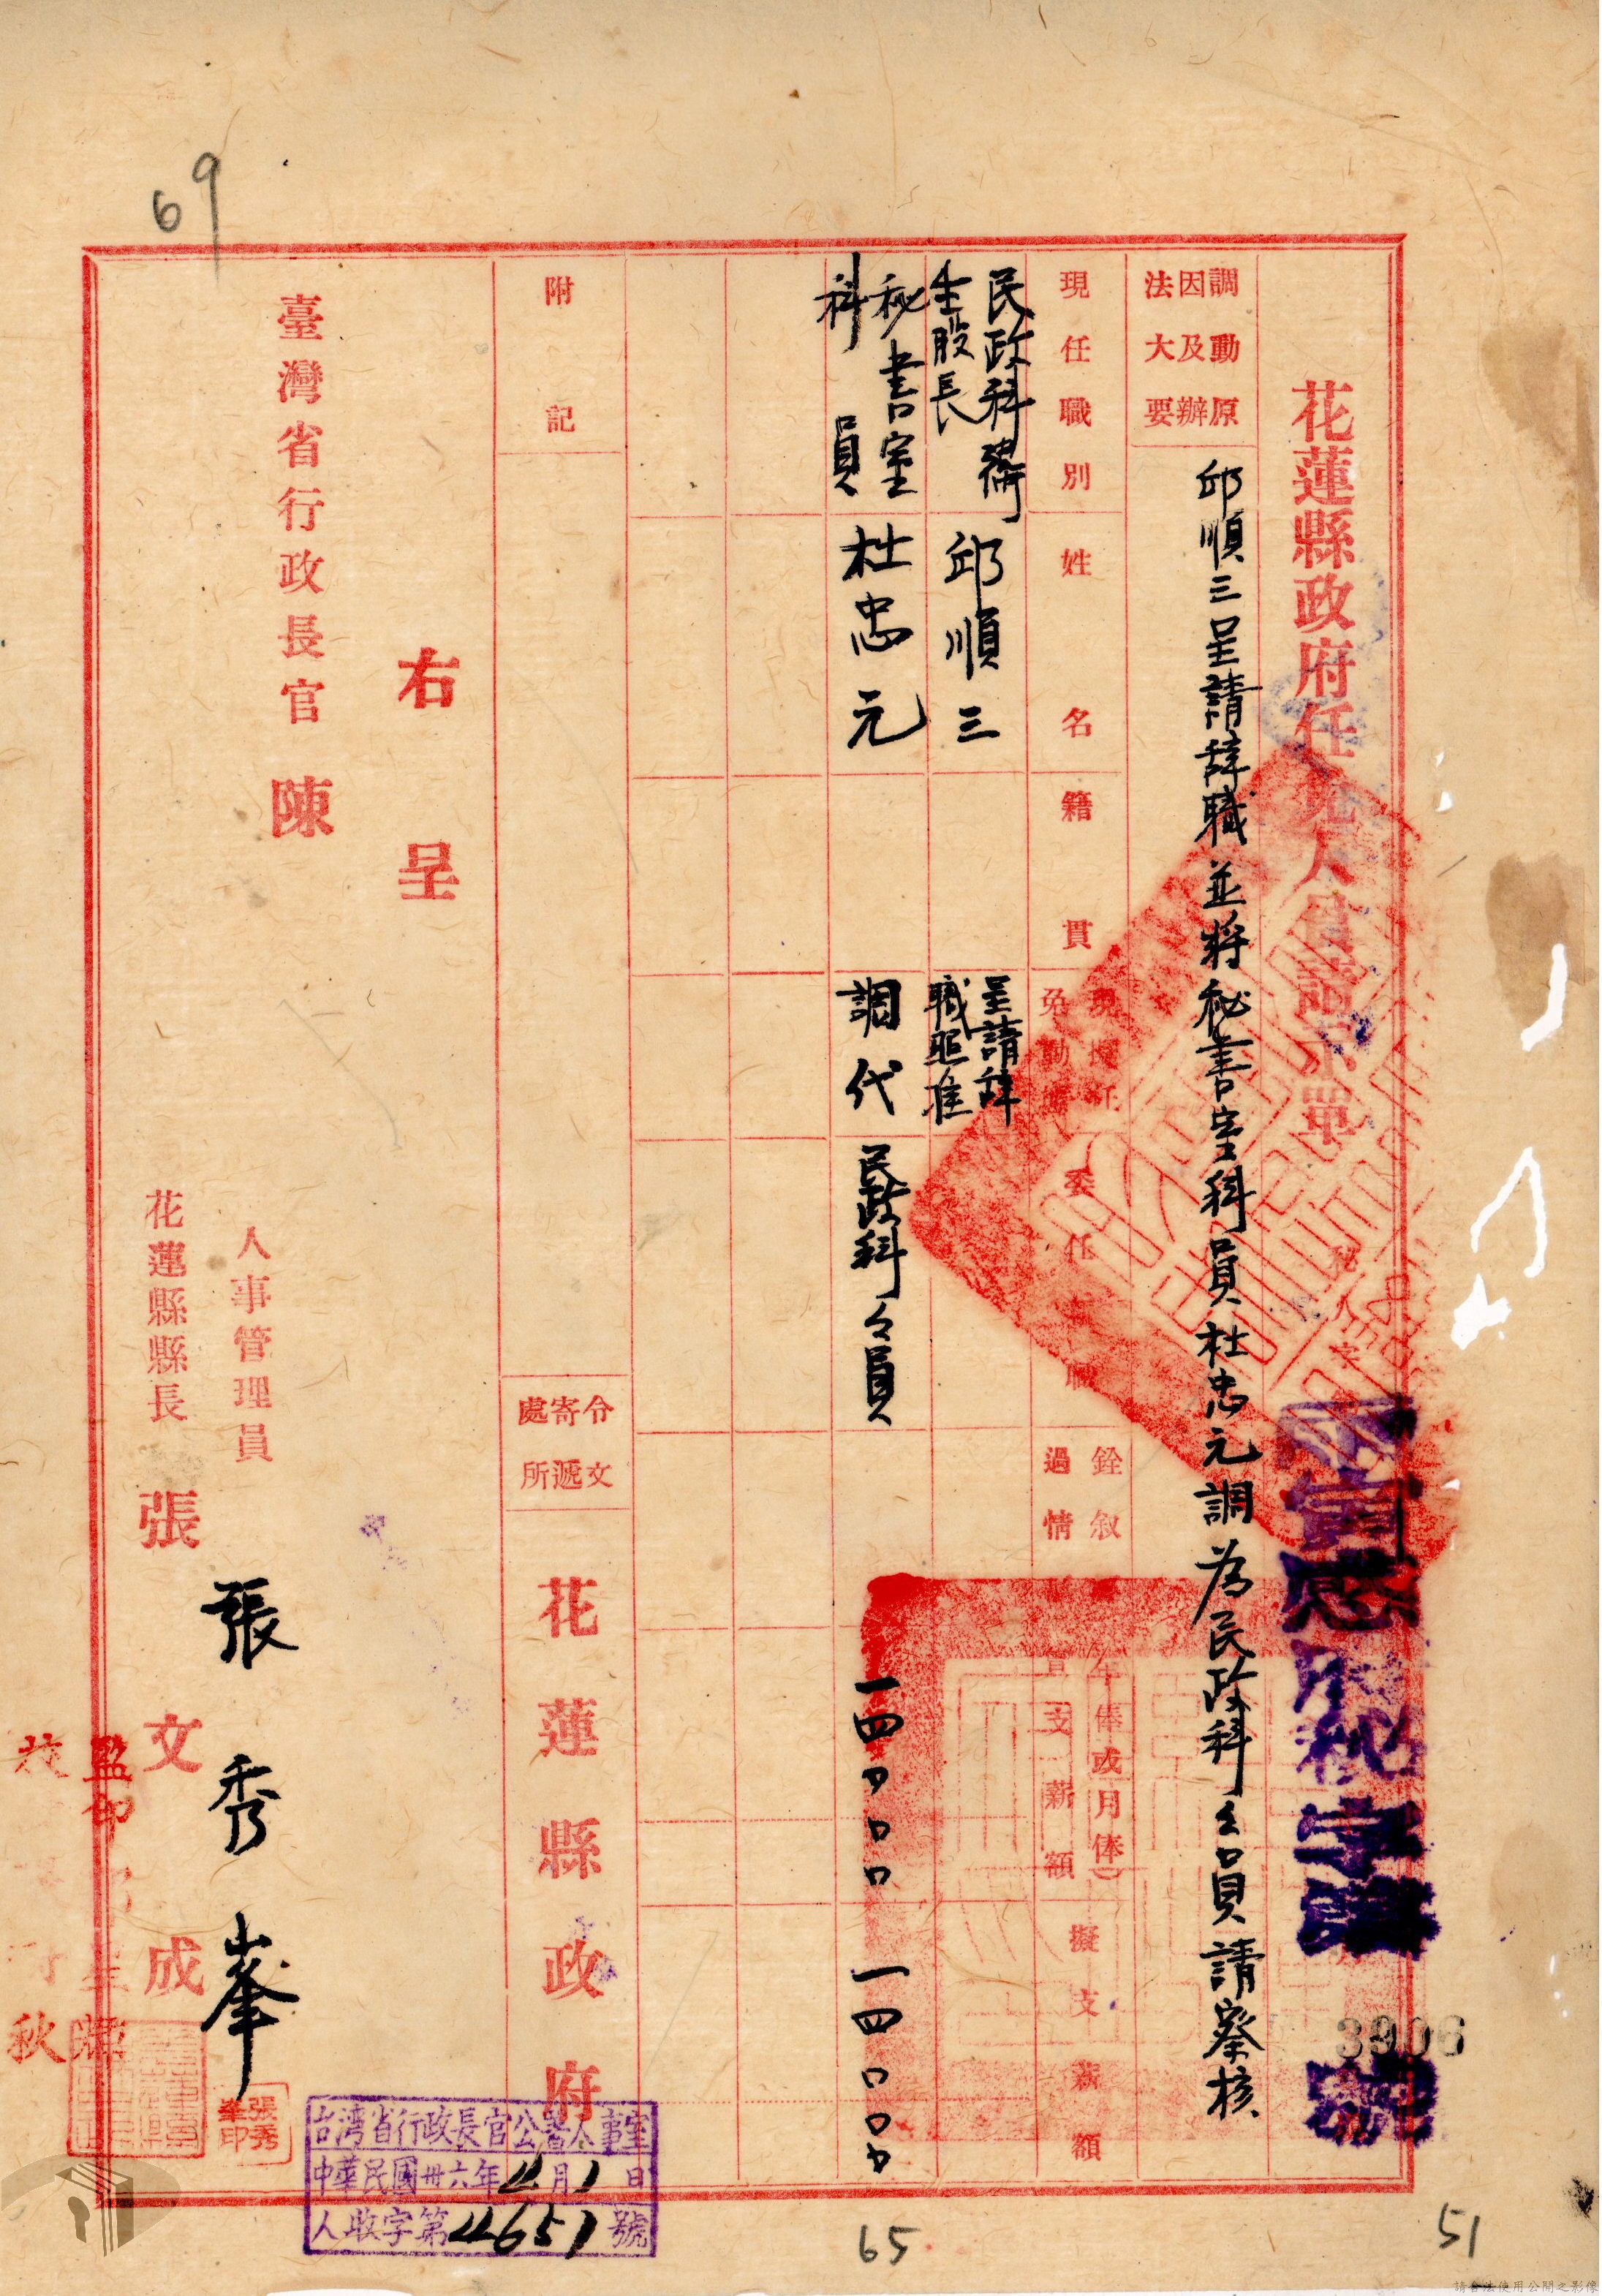 69
花蓮縣政府任免人員請示單
寅感府秘字第 3906 號
調動原因及辦法大要
邱順三呈請辞職並將秘書室科員杜忠元調為民政科々員請察核
現任職別
姓名
籍貫
現擬任免動態
委任
職
銓敘過情
年俸或月俸
支薪額
擬支薪額
民政科衛生股長
邱順三
呈請辞職照准
秘書室科員
杜忠元
調代
民政科々員
一四〇〇〇
一四〇〇〇
附記
令文寄遞處所
花蓮縣政府
右呈
臺灣省行政長官 陳
人事管理員 張秀峯
張秀峯印
花蓮縣縣長 張文成
監印
校
秋
台湾省行政長官公署人事室
中華民國卅六年4月1日
人收字第4651號
65
51
請合法使用公開之影像